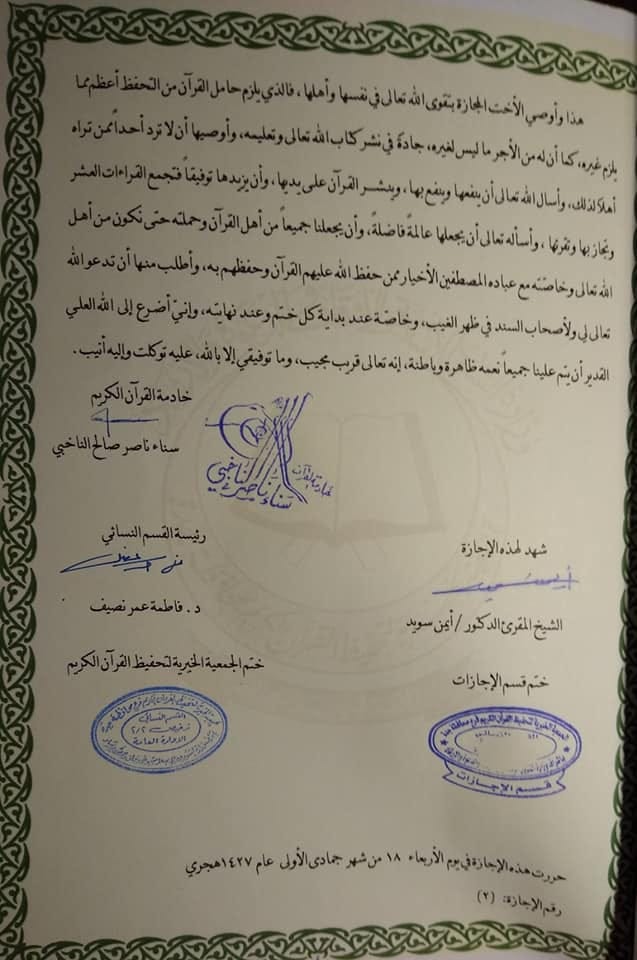 هذا وأوصي الأخت المجازة بتقوى الله تعالى في نفسها وأهلها، فالذي يلزم حامل القرآن من التحفظ أعظم مما
يلزم غيره، كما أن له من الأجور ما ليس لغيره، جادة في نشر كتاب الله تعالى وتعليمه، وأوصيها أن لا ترد أحداً ممن تراه
أهلاً لذلك، وأسأل الله تعالى أن ينفعها وينفع بها، وينشر القرآن على يديها، وأن يزيدها توفيقاً فتجمع القراءات العشر
وتجاز بها وتقرئها، وأسأله تعالى أن يجعلها عالمةً فاضلةً، وأن يجعلنا جميعاً من أهل القرآن وحملته حتى نكون من أهل
الله تعالى وخاصّته مع عباده المصطفين الأخيار ممن حفظ الله عليهم القرآن وحفظهم به، وأطلب منها أن تدعو الله
تعالى لي ولأصحاب السند في ظهر الغيب، وخاصّة عند بداية كل ختم وعند نهايته، وإنيّ أضرع إلى الله العلي
القدير أن يتم علينا جميعاً نعمه ظاهرة وباطنة، إنه تعالى قريب مجيب، وما توفيقي إلا بالله، عليه توكلت وإليه أنيب.
خادمة القرآن الكريم
سناء ناصر صالح الناخبي
خادمة القرآن
سناء ناصر الناخبي
شهد لهذه الإجازة
رئيسة القسم النسائي
الشيخ المقرئ الدكتور/أيمن سويد
د. فاطمة عمر نصيف
ختم قسم الإجازات
ختم الجمعية الخيرية لتحفيظ القرآن الكريم
الجمعية الخيرية لتحفيظ القرآن الكريم
قسم الإجازات
القسم النسائي
الادارة العامة
حررت هذه الإجازة في يوم الأربعاء ١٨ من شهر جمادى الأولى عام ١٤٢٧ هجري
رقم الإجازة: (٢)